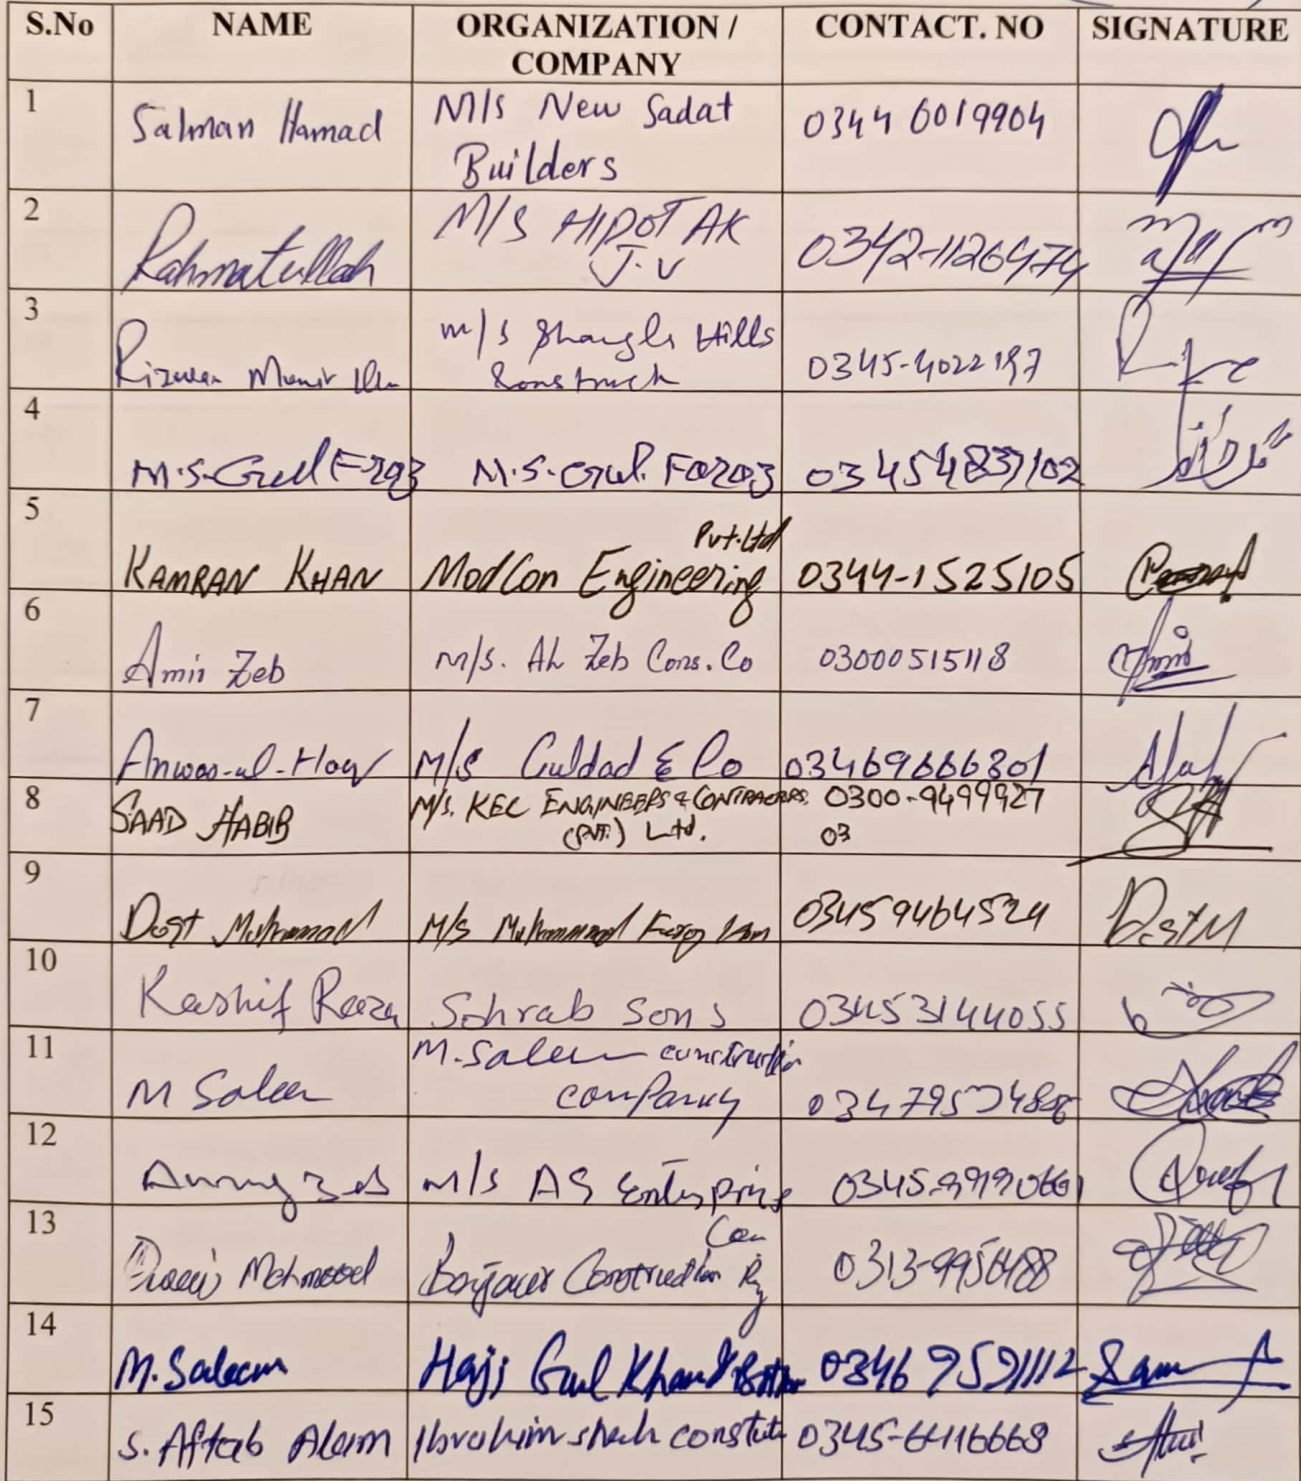 S.No NAME ORGANIZATION / COMPANY CONTACT. NO SIGNATURE
1 Salman Hamad M/s New Sadat Builders 0344 6019904
2 Rahmatullah M/S HIDOTAK J.V 0342-1126474
3 Rizwan Munir M/s Shangla Hills 0345-4022197
4 M.S. Gul Faraz M.S. Gul. Faraz 03454837102
5 KAMRAN KHAN ModCon Engineering Pvt.Ltd 0344-1525105
6 Amir Zeb M/s. Zeb Cons. Co 03000515118
7 Anwar-ul-Haq M/s Guldad & Co 03469666301
8 SAAD HABIB M/s. KEC ENGINEERS & CONTRACTORS (PVT.) Ltd. 0300-9499927
03
9 Dost Muhammad M/s Muhammad 03459464524
10 Kashif Raza Sohrab Sons 03453144055
11 M Saleem M. Saleem construction company
12 M/s AS Enterprise
13 Mehmood Construction 0313-9956488
14 M. Saleem Haji Gul Khan & 0346 9591112
15 S. Aftab Alam Ibrahim shah 0345-6416668